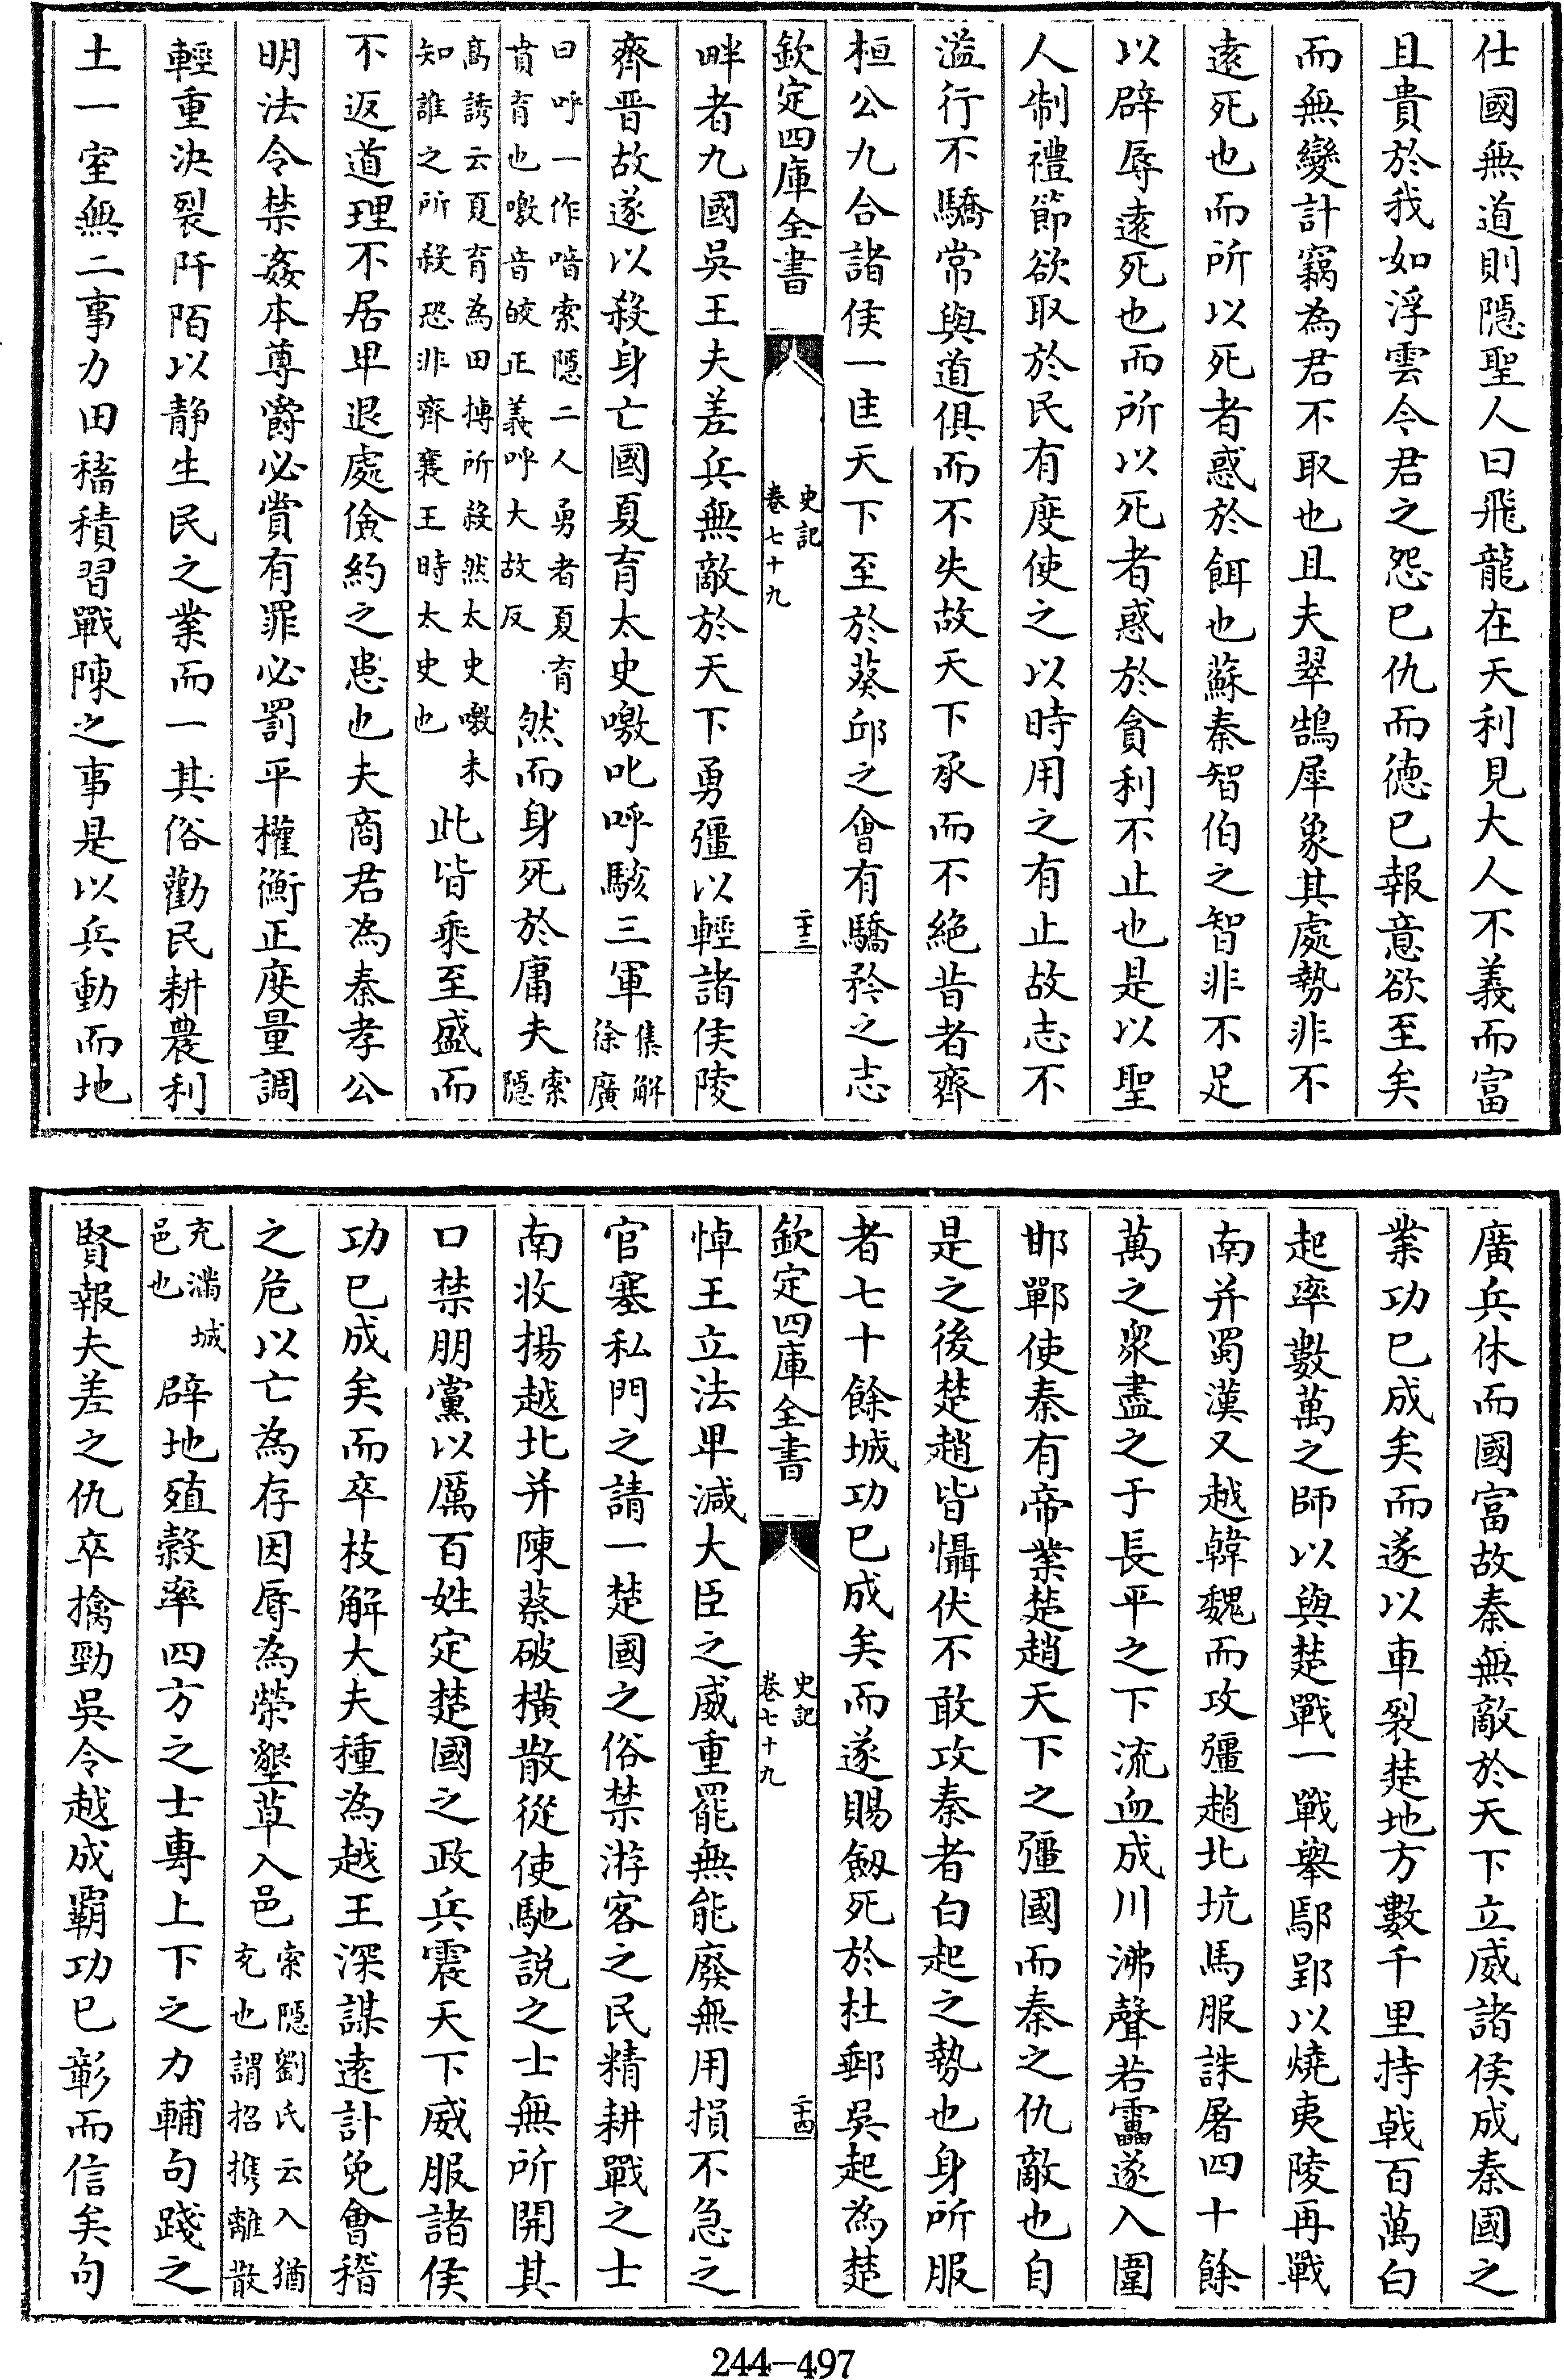 仕國無道則隱聖人曰飛龍在天利見大人不義而富
且貴於我如浮雲今君之怨已仇而徳已報意欲至矣
而無變計竊為君不取也且夫翠鵠犀象其處勢非不
逺死也而所以死者惑於餌也蘇秦智伯之智非不足
以辟辱逺死也而所以死者惑於貪利不止也是以聖
人制禮節欲取於民有度使之以時用之有止故志不
溢行不驕常與道俱而不失故天下承而不絶昔者齊
桓公九合諸侯一匡天下至於葵邱之會有驕矜之志
欽定四庫全書
史記
卷七十九
二十三
畔者九國吳王夫差兵無敵於天下勇彊以輕諸侯陵
齊晋故遂以殺身亡國夏育太史噭叱呼駭三軍集解
徐廣
曰呼一作喑索隱二人勇者夏育
賁育也噭音皎正義呼大故反然而身死於庸夫索
隱
高誘云夏育為田搏所殺然太史噭未
知誰之所殺恐非齊襄王時太史也此皆乗至盛而
不返道理不居卑退處儉約之患也夫商君為秦孝公
明法令禁姦本尊爵必賞有罪必罰平權衡正度量調
輕重決裂阡陌以静生民之業而一其俗勸民耕農利
土一室無二事力田稸積習戰陳之事是以兵動而地
廣兵休而國富故秦無敵於天下立威諸侯成秦國之
業功已成矣而遂以車裂楚地方數千里持戟百萬白
起率數萬之師以與楚戰一戰舉鄢郢以燒夷陵再戰
南并蜀漢又越韓魏而攻彊趙北坑馬服誅屠四十餘
萬之衆盡之于長平之下流血成川沸聲若靁遂入圍
邯鄲使秦有帝業楚趙天下之彊國而秦之仇敵也自
是之後楚趙皆懾伏不敢攻秦者白起之勢也身所服
者七十餘城功已成矣而遂賜劔死於杜郵吳起為楚
欽定四庫全書
史記
卷七十九
二十四
悼王立法卑減大臣之威重罷無能廢無用損不急之
官塞私門之請一楚國之俗禁游客之民精耕戰之士
南收揚越北并陳蔡破横散從使馳説之士無所開其
口禁朋黨以厲百姓定楚國之政兵震天下威服諸侯
功已成矣而卒枝解大夫種為越王深謀逺計免會稽
之危以亡為存因辱為榮墾草入邑索隱劉氏云入猶
充也謂招攜離散
充滿城
邑也辟地殖榖率四方之士專上下之力輔句踐之
賢報夫差之仇卒擒勁吳令越成霸功已彰而信矣句
244-497